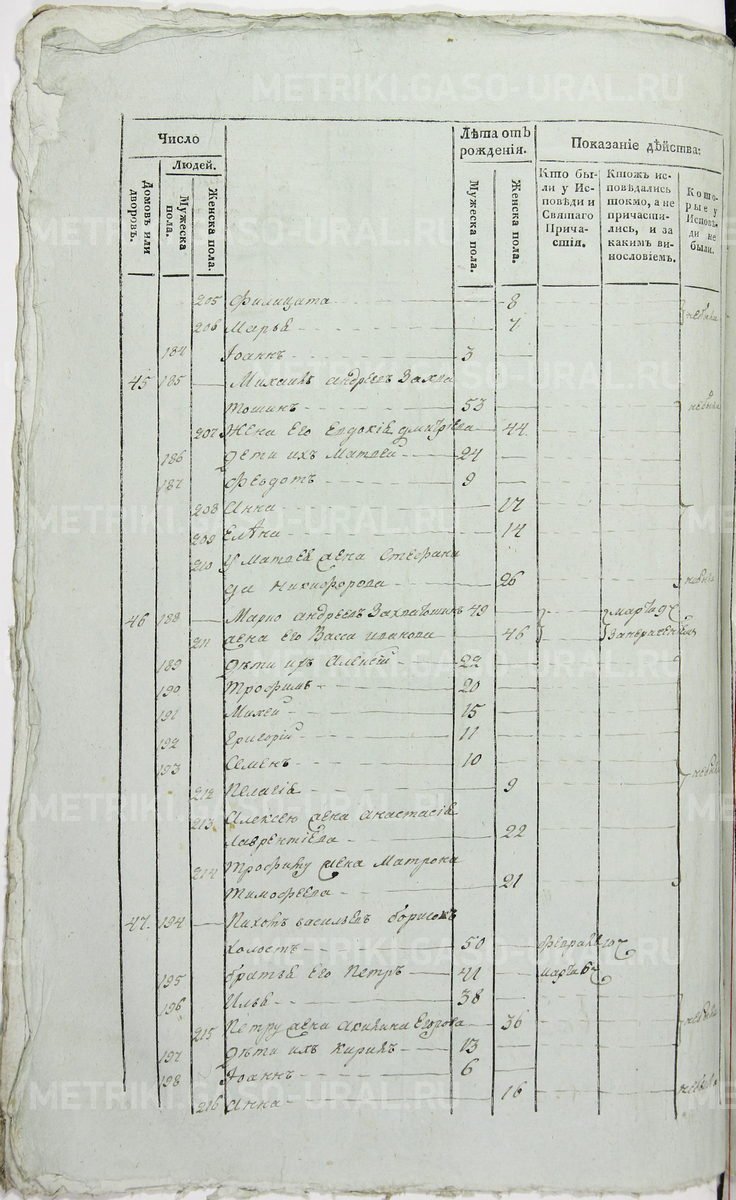 METRIKI.GASO-URAL.RU
Число
Лѣта отъ рожденія.
Показаніе дѣйства:
Людей.
Домовъ или дворовъ.
Мужеска пола.
Женска пола.
Мужеска пола.
Женска пола.
Кто бы-
ли у Ис-
повѣди и
Святаго
Прича-
стія.
Ктожъ ис-
повѣдались
токмо, а не
причасти-
лись, и за
какимъ ви-
нословіемъ.
Кото-
рые у
Исповѣ-
ди не
были.
205 Филицата 8
206 Марья 7
184 Іоаннъ 3
45 185 Михаилъ андреевъ
53
207 Жена его Евдокія 44
186 дети ихъ Матвеи 24
187 Феодотъ 9
208 Анна 17
209 Елѣна 14
210 У Матвея жена Стефани
да Никифорова 26
46 188 Марко андреевъ 49 марта
211 жена его Васса 46
189 дѣти ихъ Алексѣй 22
190 Трофимъ 20
191 Михей 15
192 Григорій 11
193 Семенъ 10
212 Пелагія 9
213 Алексею жена анастасія
лаврентіева 22
214 Трофиму жена Матрона
Тимофеева 21
47. 194 васильевъ борисовъ
холостъ 50
195 братья его Петръ 41 марта 6
196 Илья 38
215 Петру жена Акилина Егорова 36
197 дѣти ихъ Кирилъ 13
198 Іоаннъ 6
216 Анна 16